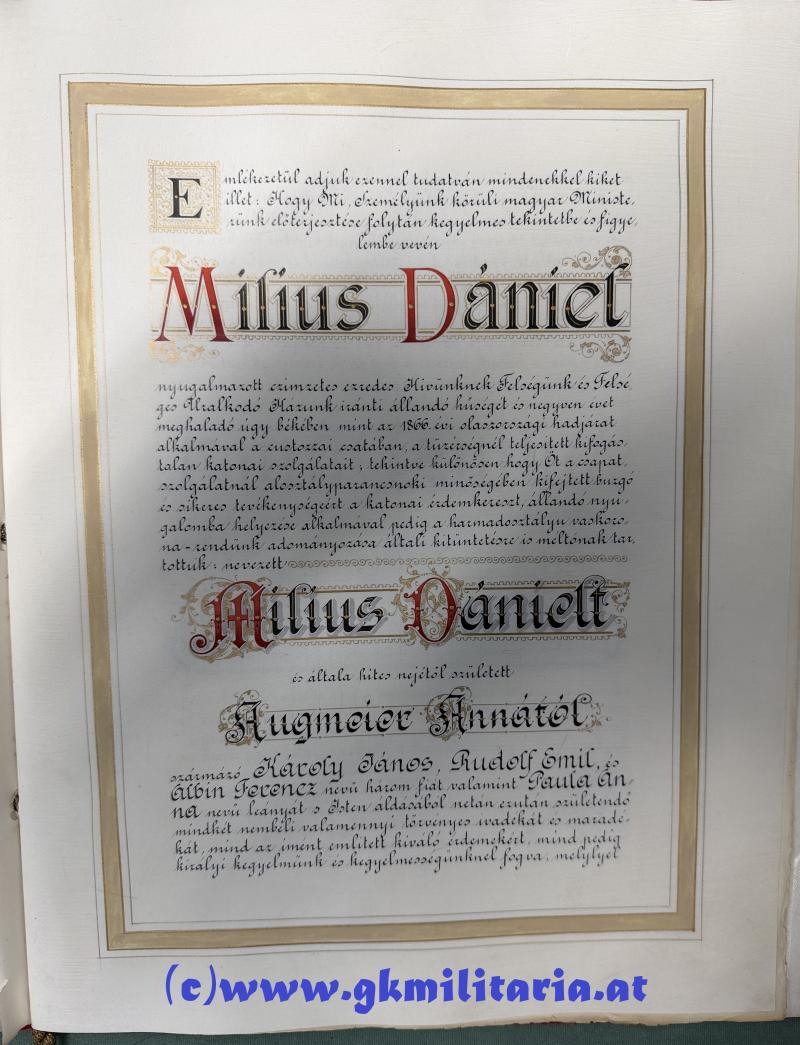 Emlékezetűl adjuk ezennel tudatván mindenekkel kiket
illet: Hogy Mi, Személyünk körüli magyar Ministe,
rünk előterjesztése folytán kegyelmes tekintetbe és figye,
lembe vevén
Milius Dániel
nyugalmazott czimzetes ezredes Hivünknek Felségünk és Felsé,
ges Uralkodó Házunk iránti állandó hűségét és negyven évet
meghaladó úgy békében mint az 1866. évi olaszországi hadjárat
alkalmával a custozzai csatában, a tüzérségnél teljesitett kifogás,
talan katonai szolgálatait; tekintve különösen hogy Őt a csapat,
szolgálatnál alosztályparancsnoki minőségében kifejtett buzgó
és sikeres tevékenységeért a katonai érdemkereszt, állandó nyu,
galomba helyezése alkalmával pedig a harmadosztályu vaskoro,
na-rendünk adományozása általi kitüntetésre is méltónak tar,
tottuk; nevezett
Milius Dánielt
és általa hites nejétől született
Augmeier Annától
származó Károly János, Rudolf Emil, és
Albin Ferencz nevü három fiát valamint Paula An,
na nevü leányát s Isten áldásából netán ezután születendő
mindkét nembéli valamennyi törvényes ivadékát és maradé,
kát, mind az imént emlitett kiváló érdemekért, mind pedig
királyi kegyelmünk és kegyelmességünknél fogva, melylyel
(c)www.gkmilitaria.at